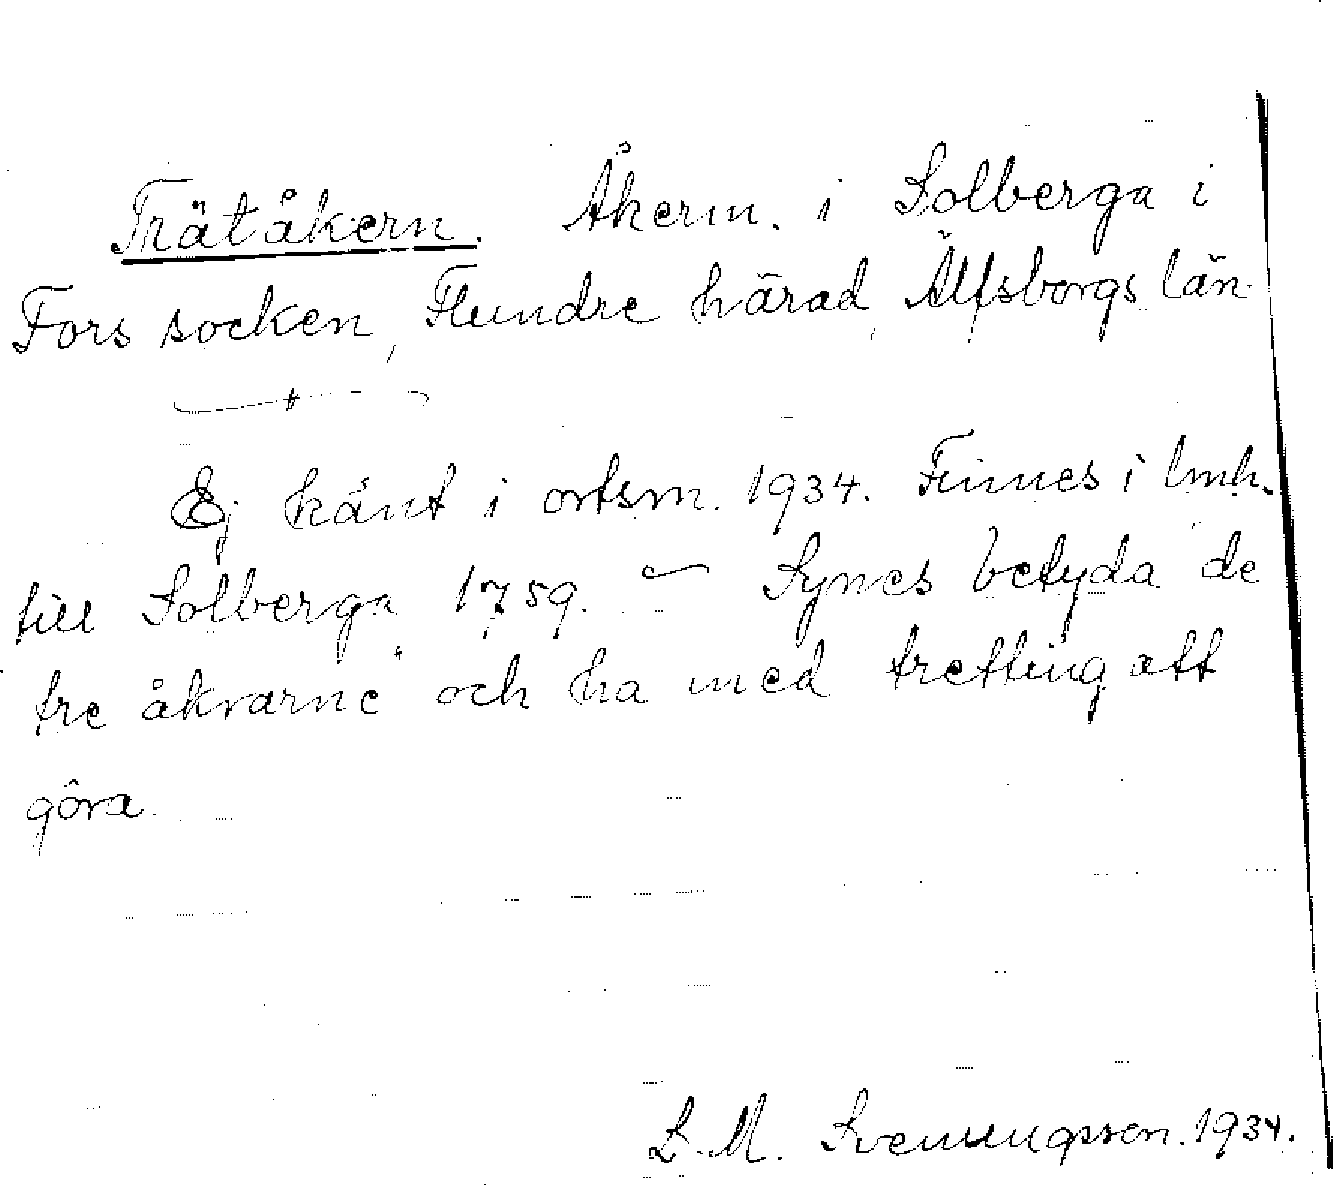 Trätåkern. Åkerm. i Solberga i
Fors socken, Flundre härad, Älfsborgs län.
Ej känt i ortsm. 1934. Finnes i lmh.
till Solberga 1759. — Synes betyda "de
tre åkrarne" och ha med tretting att
göra.
S. M. Svenungsson. 1934.